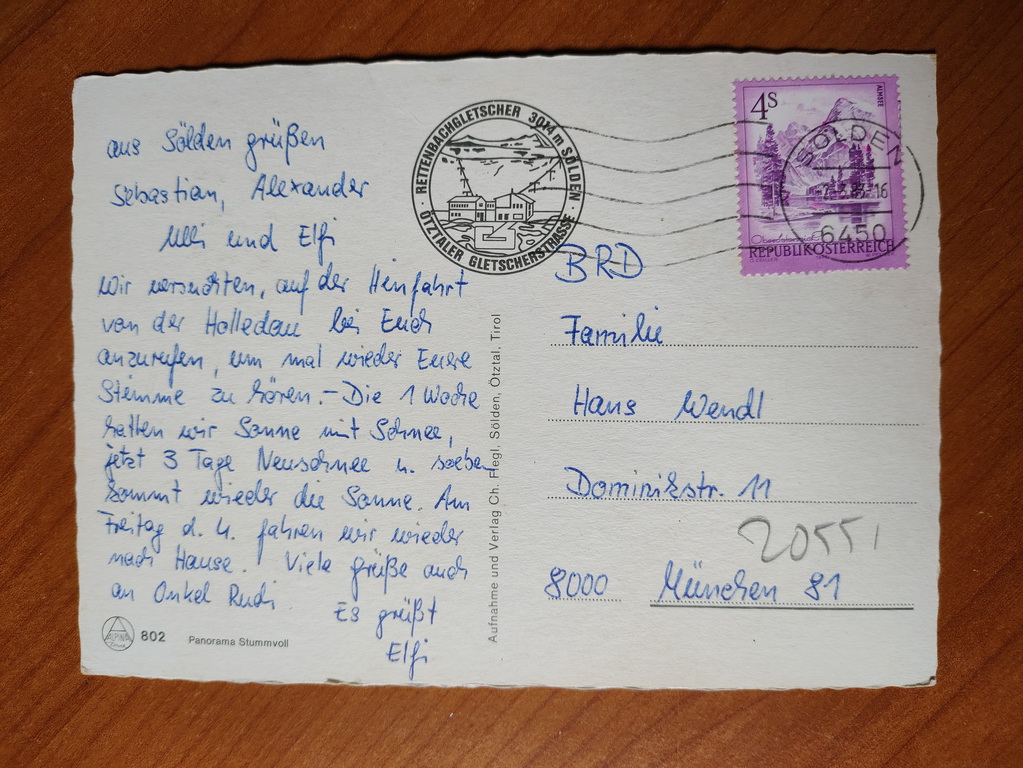 aus Sölden grüßen
Sebastian, Alexander
Ulli und Elfi
Wir versuchten, auf der Hinfahrt
von der Holledau bei Euch
anzurufen, um mal wieder Eure
Stimme zu hören. – Die 1 Woche
hatten wir Sonne mit Schnee,
jetzt 3 Tage Neuschnee u. soeben
kommt wieder die Sonne. Am
Freitag d. 4. fahren wir wieder
nach Hause. Viele Grüße auch
an Onkel Rudi.
Es grüßt
Elfi
ALPINA
802
Panorama Stummvoll
Aufnahme und Verlag Ch. Flegl, Sölden, Ötztal, Tirol
RETTENBACHGLETSCHER 3014 m SÖLDEN
ÖTZTALER GLETSCHERSTRASSE
4S
ALMSEE
REPUBLIK ÖSTERREICH
SÖLDEN
6450
BRD
Familie
Hans Wendl
Dominikstr. 11
2055
8000 München 81